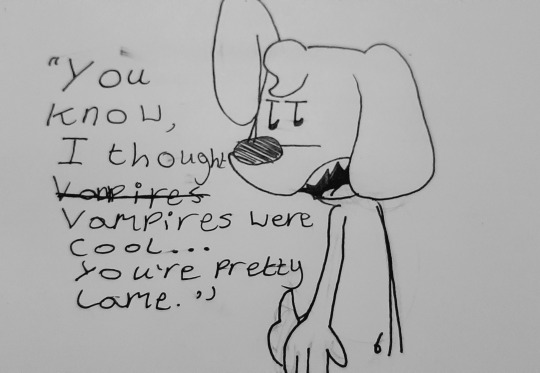 "You
know,
I thought
Vampires
Vampires were
cool...
You're pretty
Lame."